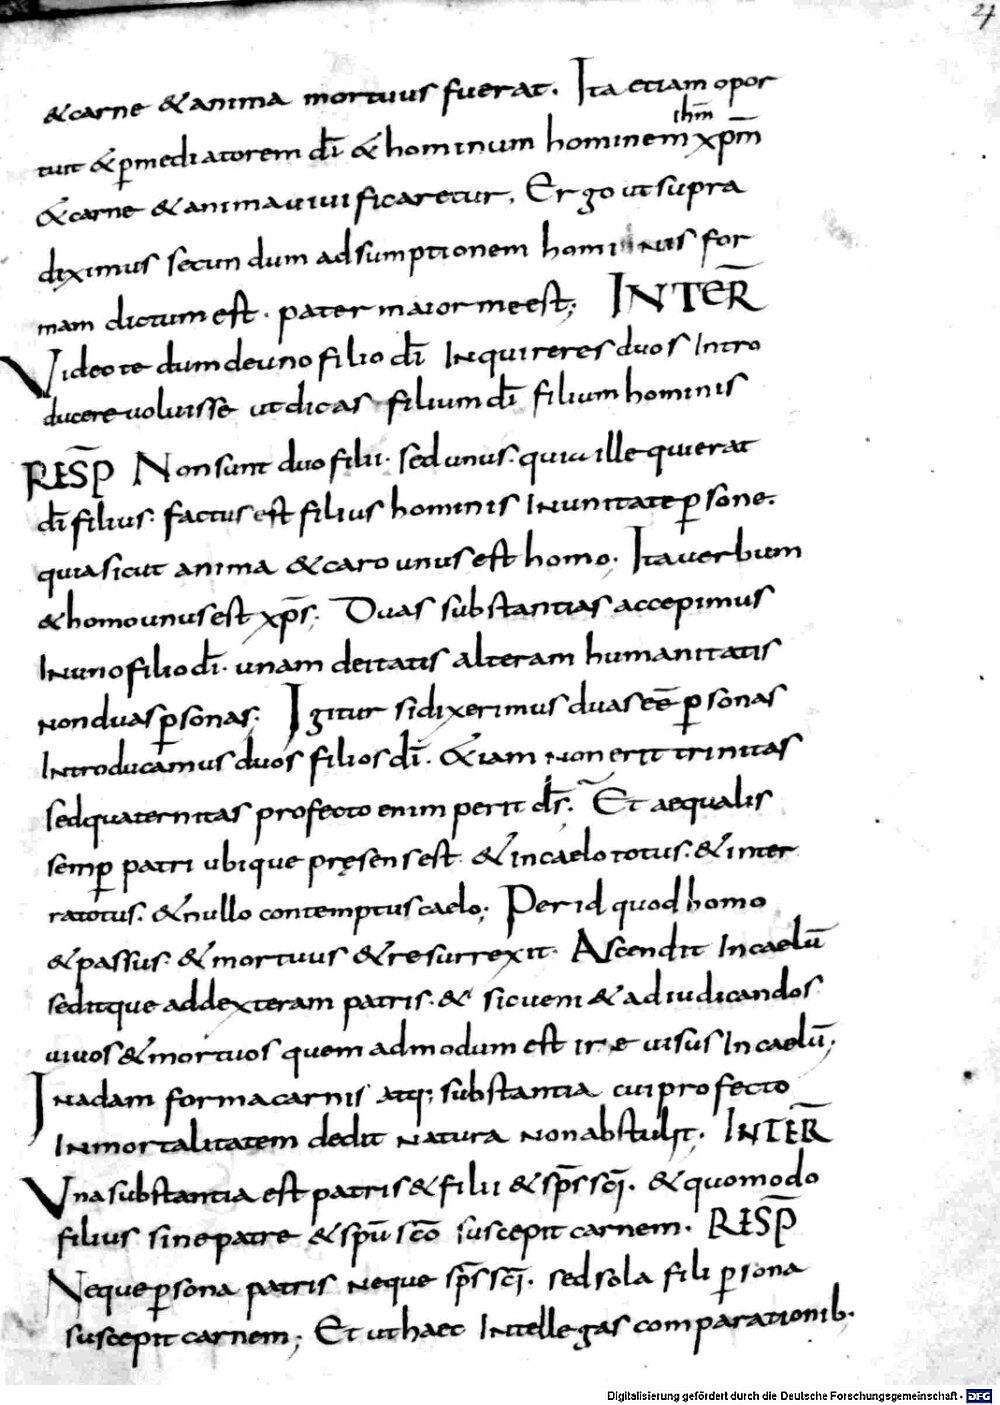 27
&carne &anima mortuus fuerat. Ita etiam opor
ihm̅
tuit &p̱mediatorem dī &hominum hominem xp̅m
&carne &animauiuificaretur, Ergo utsupra
diximus secundum adsumptionem hominis for
mam dictum est. pater maior me est; INTER̅
Videote dumdeuno filio dī Inquireres duos Intro
ducere uoluisse ut dicas filium dī filium hominis
RESP̅ Non sunt duo filii. sed unus. quia ille qui erat
dī filius. factus est filius hominis Inunitate p̱sone.
quia sicut anima &caro unus est homo. Ita uerbum
&homo unus est xp̅s; Duas substantias accepimus
Inuno filio dī. unam deitatis alteram humanitatis
non duas p̱sonas; Igitur si dixerimus duas ee̅ p̱sonas
Introducamus duos filios dī. &iam non erit trinitas
sed quaternitas profecto enim perit ds̅. Et aequalis
semp̱ patri ubique pręsens est &in caelo totus. &inter
ra totus. &nullo contemptus caelo; Per id quod homo
&passus. &mortuus &resurrexit. Ascendit In caelū
seditque ad dexteram patris. &sic ueni& ad iudicandos
uiuos &mortuos quemadmodum est ire uisus In caelū;
Inadam forma carnis atq; substantia cui profecto
Inmortalitatem dedit natura non abstulit. INTER̅
Una substantia est patris &filii &sp̅s sci̅. &quomodo
filius sine patre &spū sco̅ suscepit carnem. RESP̅
Neque p̱sona patris neque sp̅s sci̅. sed sola fili p̱sona
suscepit carnem; Et ut haec Intellegas comparationib.
Digitalisierung gefördert durch die Deutsche Forschungsgemeinschaft - DFG